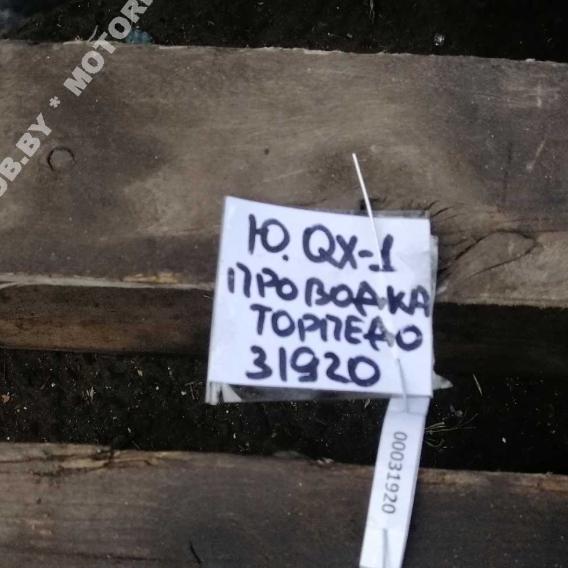 OB.BY * MOTOR
Ю. QX-1
ПРОВОДКА
ТОРПЕДО
31920
00031920